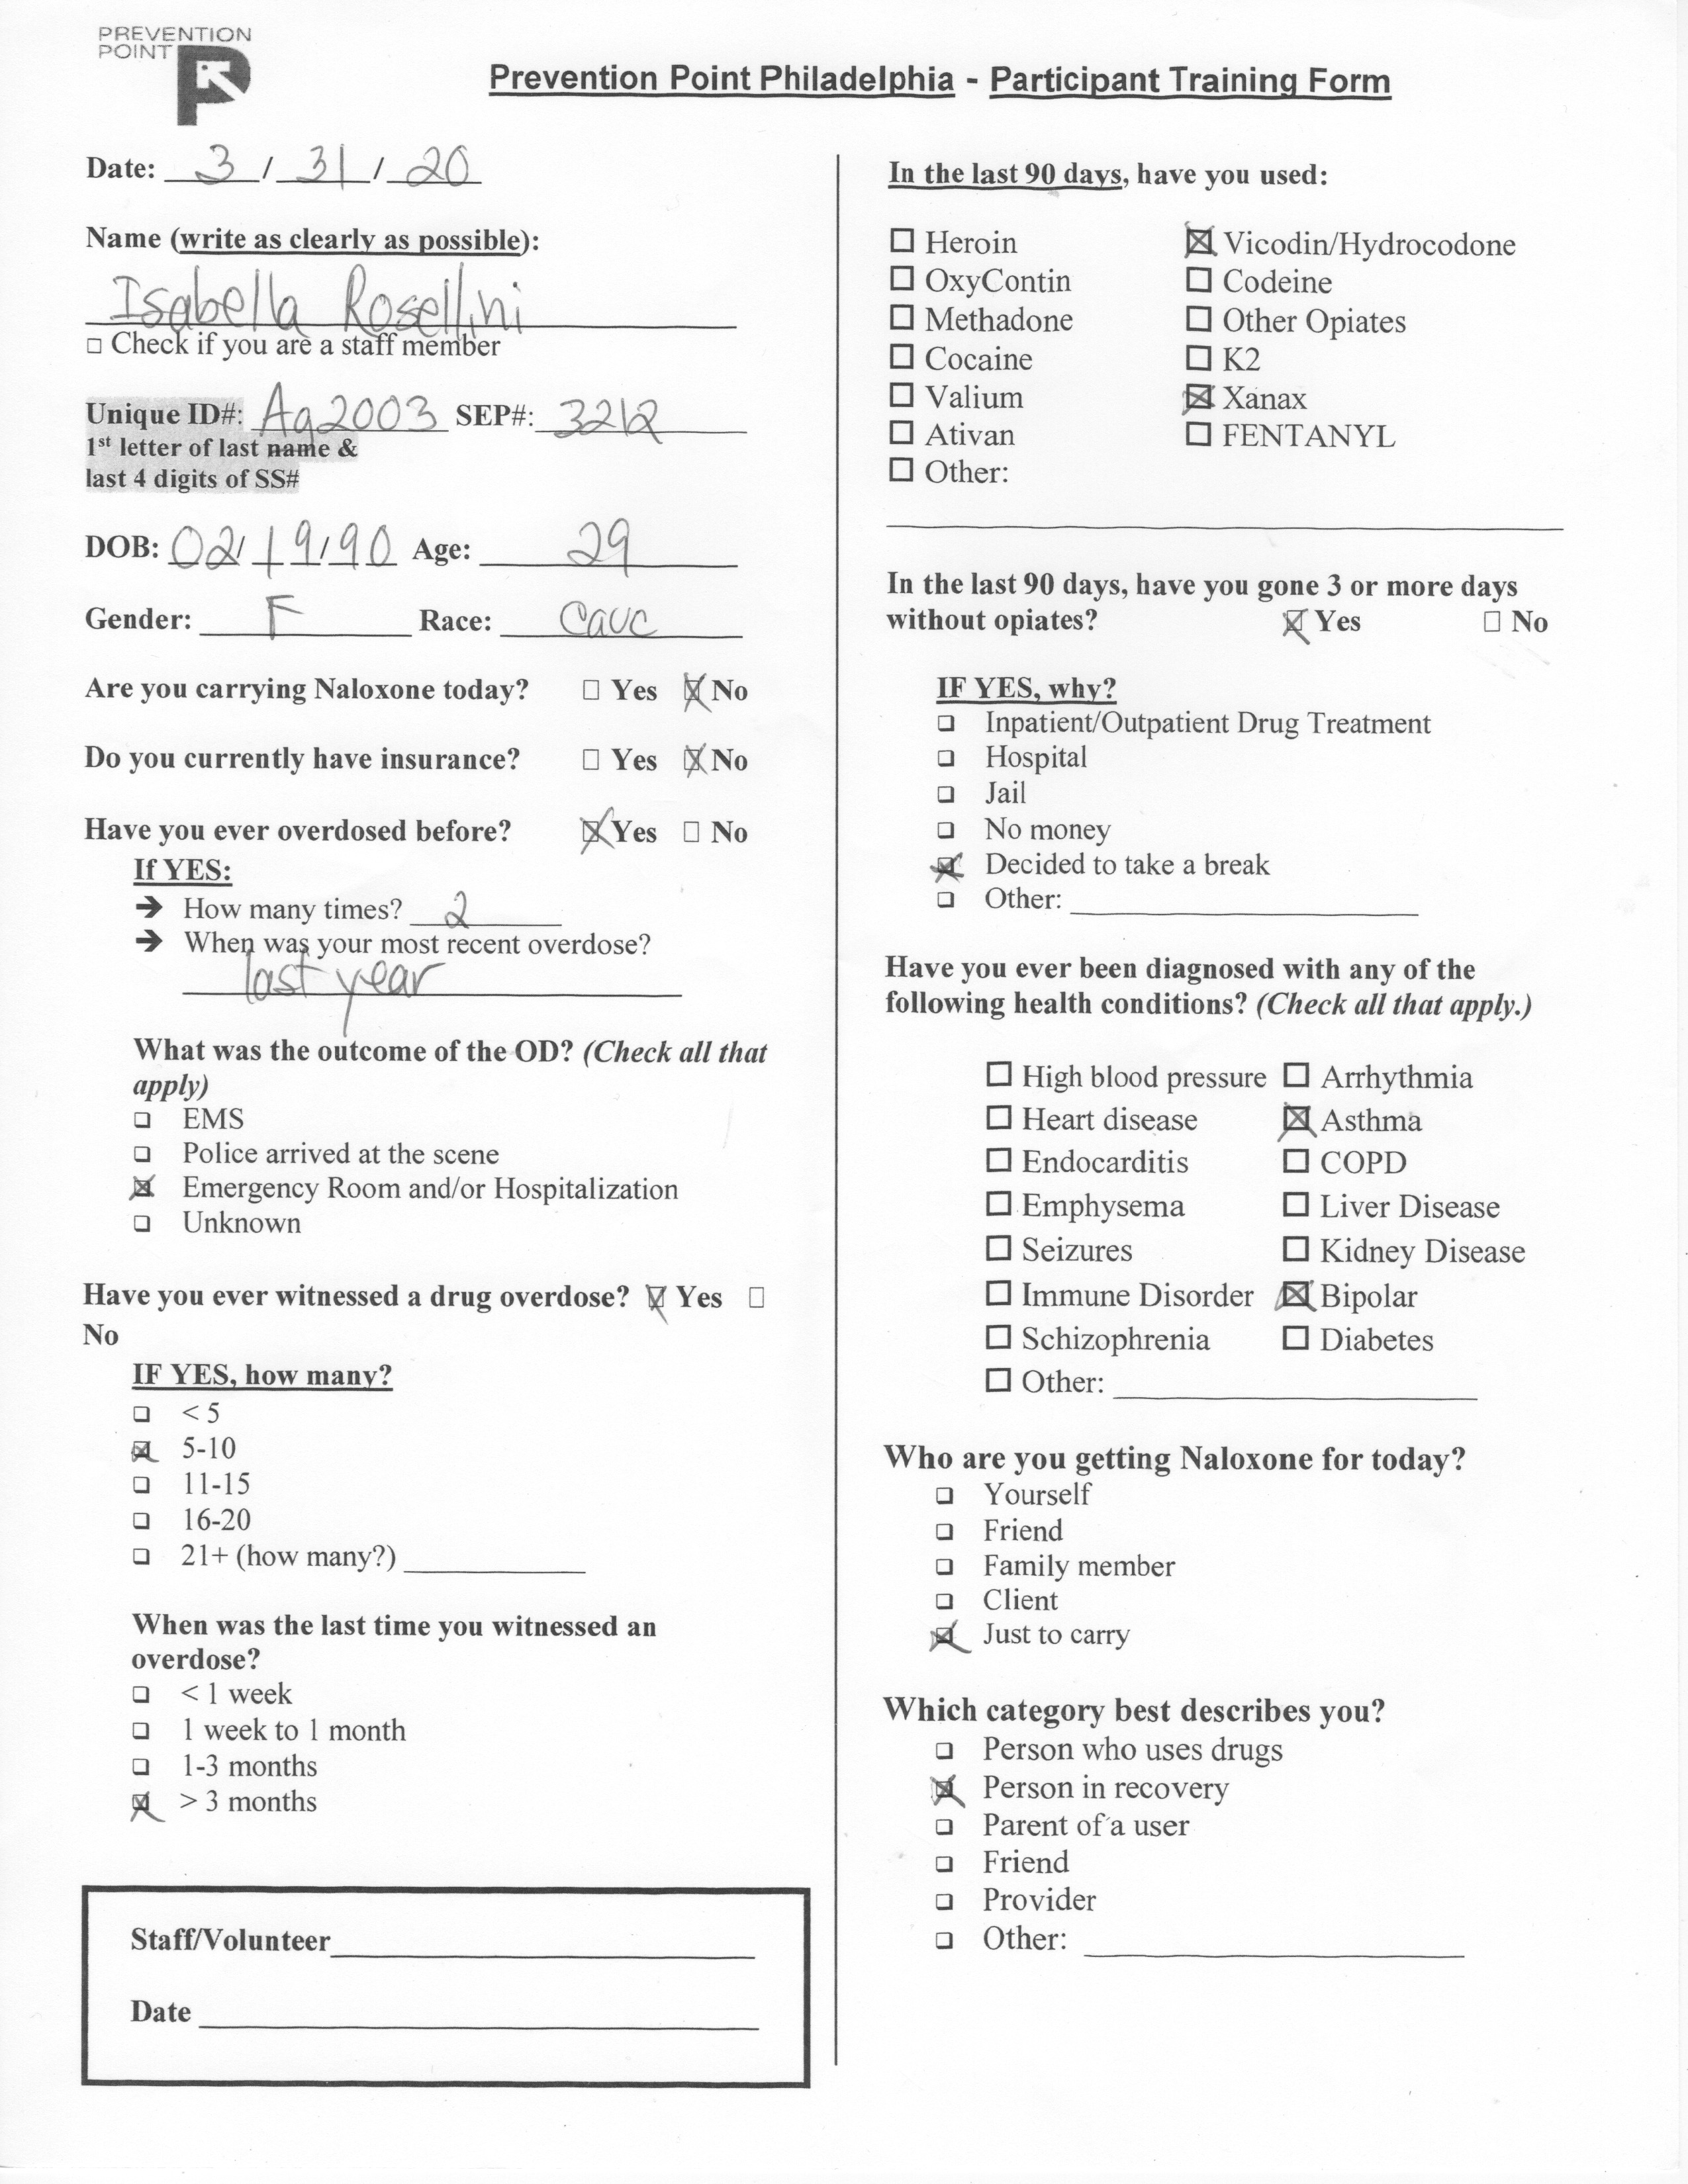 PREVENTION
POINT
Prevention Point Philadelphia - Participant Training Form
Date: 3 / 31 / 20
Name (write as clearly as possible):
Isabella Rosellini
Check if you are a staff member
Unique ID#: Ag2003 SEP#: 3212
1st letter of last name &
last 4 digits of SS#
DOB: 02/19/90 Age: 29
Gender: F Race: Cauc
Are you carrying Naloxone today? Yes No
Do you currently have insurance? Yes No
Have you ever overdosed before? Yes No
If YES:
→ How many times? 2
→ When was your most recent overdose?
last year
What was the outcome of the OD? (Check all that
apply)
EMS
Police arrived at the scene
Emergency Room and/or Hospitalization
Unknown
Have you ever witnessed a drug overdose? Yes
No
IF YES, how many?
< 5
5-10
11-15
16-20
21+ (how many?)
When was the last time you witnessed an
overdose?
< 1 week
1 week to 1 month
1-3 months
> 3 months
Staff/Volunteer
Date
In the last 90 days, have you used:
Heroin Vicodin/Hydrocodone
OxyContin Codeine
Methadone Other Opiates
Cocaine K2
Valium Xanax
Ativan FENTANYL
Other:
In the last 90 days, have you gone 3 or more days
without opiates? Yes No
IF YES, why?
Inpatient/Outpatient Drug Treatment
Hospital
Jail
No money
Decided to take a break
Other:
Have you ever been diagnosed with any of the
following health conditions? (Check all that apply.)
High blood pressure Arrhythmia
Heart disease Asthma
Endocarditis COPD
Emphysema Liver Disease
Seizures Kidney Disease
Immune Disorder Bipolar
Schizophrenia Diabetes
Other:
Who are you getting Naloxone for today?
Yourself
Friend
Family member
Client
Just to carry
Which category best describes you?
Person who uses drugs
Person in recovery
Parent of a user
Friend
Provider
Other: